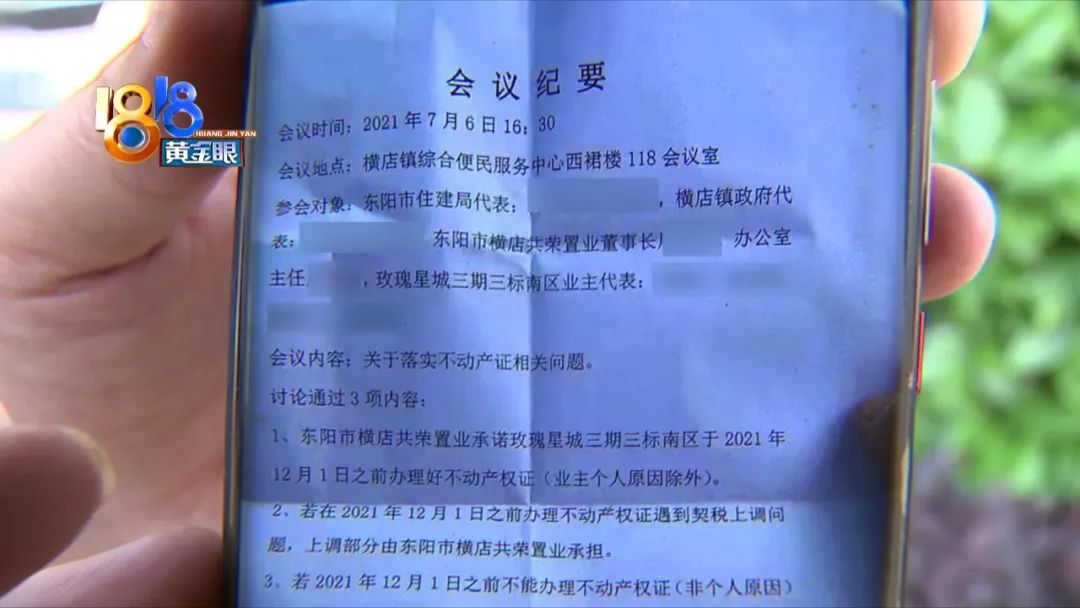 1818
HUANG JIN YAN
黄金眼
会议纪要
会议时间：2021年7月6日16：30
会议地点：横店镇综合便民服务中心西裙楼118会议室
参会对象：东阳市住建局代表： ，横店镇政府代
表： 东阳市横店共荣置业董事长 办公室
主任 ，玫瑰星城三期三标南区业主代表：
会议内容：关于落实不动产证相关问题。
讨论通过3项内容：
1、东阳市横店共荣置业承诺玫瑰星城三期三标南区于2021年
12月1日之前办理好不动产权证（业主个人原因除外）。
2、若在2021年12月1日之前办理不动产权证遇到契税上调问
题，上调部分由东阳市横店共荣置业承担。
3、若2021年12月1日之前不能办理不动产权证（非个人原因）